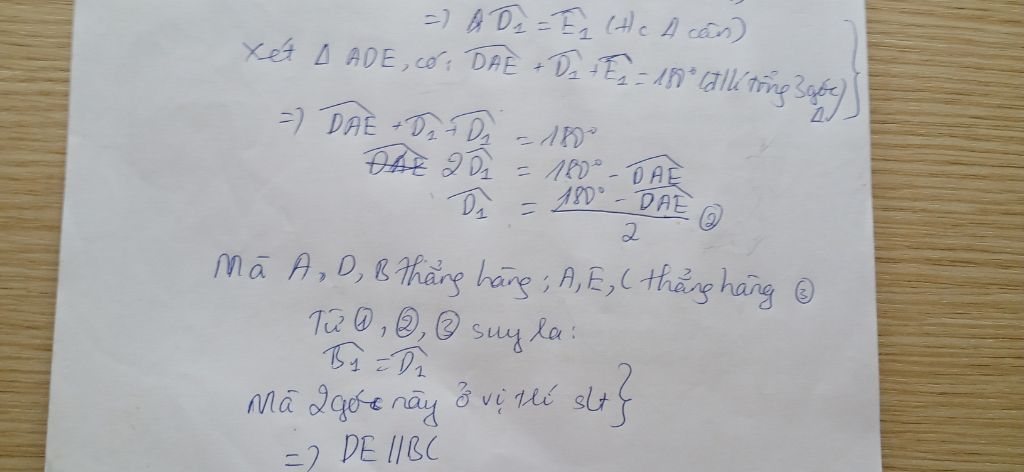 => D̂₁ = Ê₁ (t/c Δ cân)
Xét Δ ADE, có: DAE + D̂₁ + Ê₁ = 180° (đ/lí tổng 3 góc Δ)
=> DAE + D̂₁ + D̂₁ = 180°
2D̂₁ = 180° - DAE
D̂₁ = (180° - DAE) / 2 ②
Mà A, D, B thẳng hàng; A, E, C thẳng hàng ③
Từ ①, ②, ③ suy la:
B̂₁ = D̂₁
Mà 2 góc này ở vị trí slt }
=> DE // BC